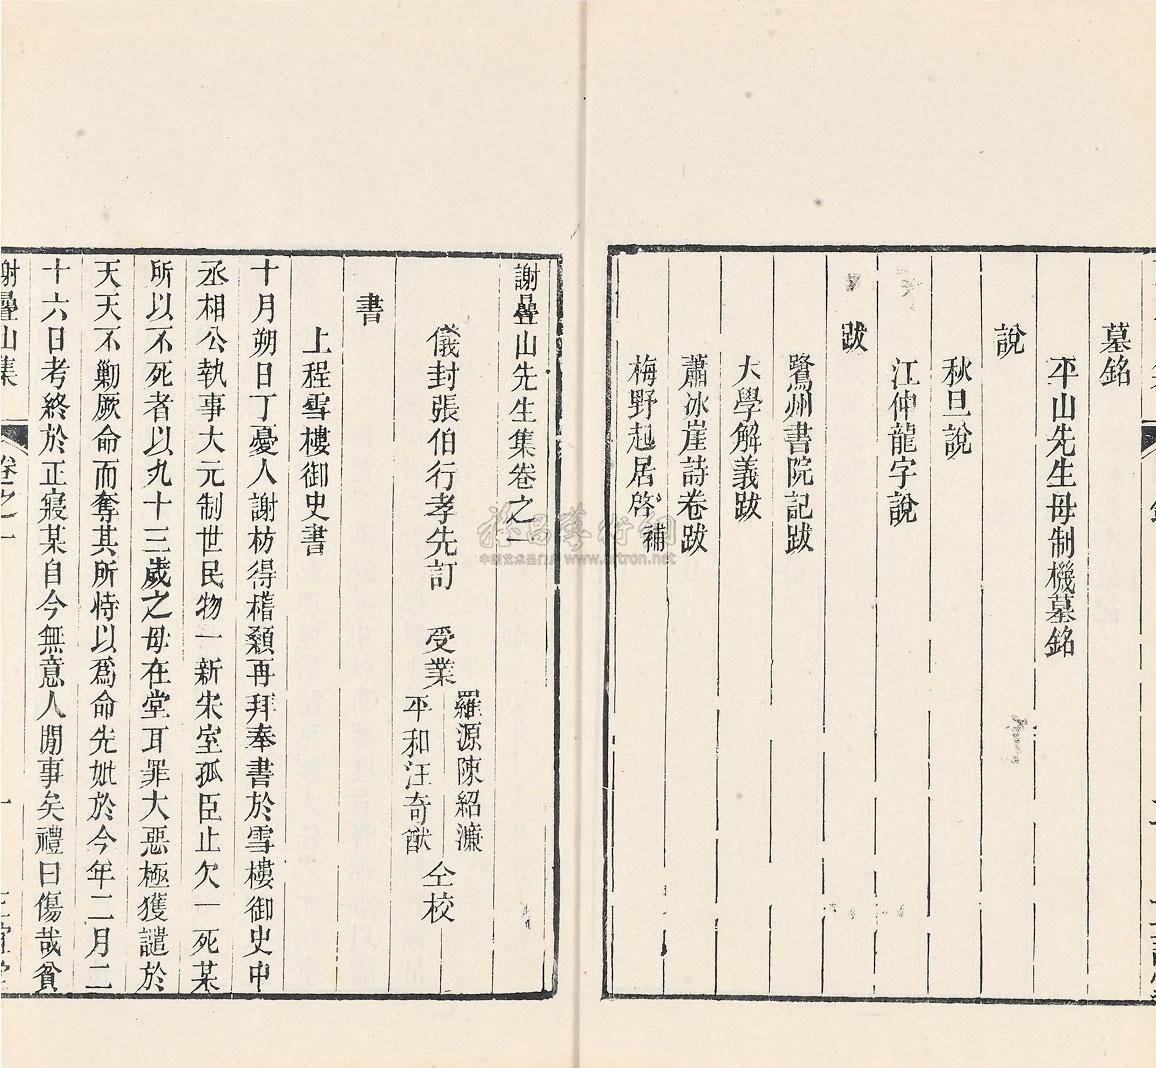 墓銘
平山先生母制機墓銘
說
秋旦說
江仲龍字說
跋
鷺州書院記跋
大學解義跋
蕭冰崖詩卷跋
梅野起居啓補
謝疊山先生集卷之一
儀封張伯行孝先訂 受業
羅源陳紹濂
平和汪奇猷
仝校
書
上程雪樓御史書
十月朔日丁憂人謝枋得稽顙再拜奉書於雪樓御史中
丞相公執事大元制世民物一新宋室孤臣止欠一死某
所以不死者以九十三歲之母在堂耳罪大惡極獲譴於
天天不勦厥命而奪其所恃以爲命先妣於今年二月二
十六日考終於正寢某自今無意人閒事矣禮曰傷哉貧
謝疊山集 卷之一 一 正誼堂
www.artron.net